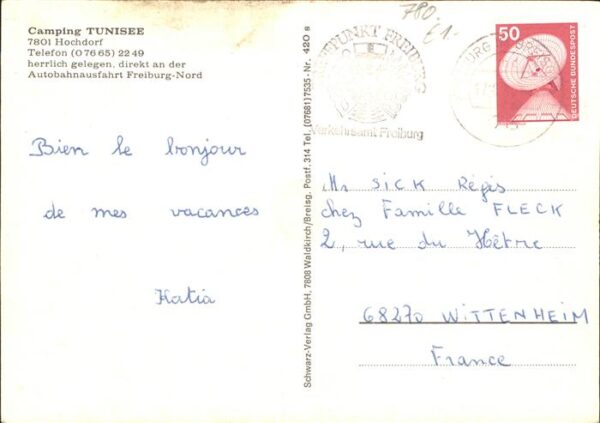 Camping TUNISEE
7801 Hochdorf
Telefon (0 76 65) 22 49
herrlich gelegen, direkt an der
Autobahnausfahrt Freiburg-Nord
Bien le bonjour
de mes vacances
Katia
Schwarz-Verlag GmbH, 7808 Waldkirch/Breisg. Postf. 314 Tel. (07681) 7535 - Nr. 420 s
780.
£1-
FREIBURG
Verkehrsamt Freiburg
50
DEUTSCHE BUNDESPOST
Mr SICK Régis
chez Famille FLECK
2, rue du Hêtre
68270 WITTENHEIM
France